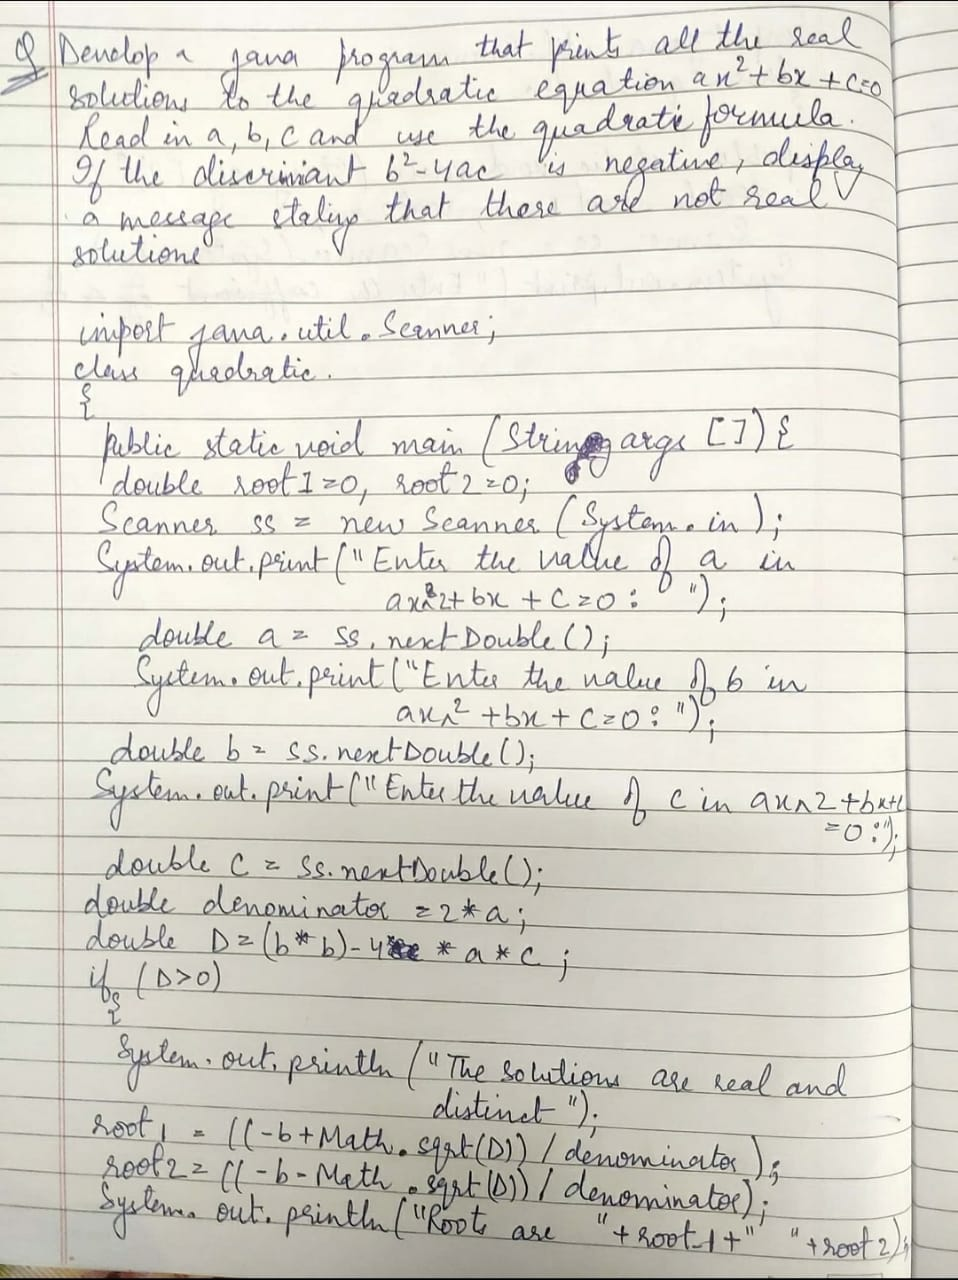 Q Develop a java program that prints all the real
solutions to the quadratic equation ax²+bx+c=0
Read in a, b, c and use the quadratic formula.
If the discriminant b²-4ac is negative, display
a message stating that there are not real
solutions
import java.util.Scanner;
class quadratic.
{
public static void main (String args []) {
double root1=0, root2=0;
Scanner ss = new Scanner (System.in);
System.out.print("Enter the value of a in
ax^2+bx+c=0: ");
double a = ss.nextDouble();
System.out.print("Enter the value of b in
ax^2+bx+c=0: ");
double b = ss.nextDouble();
System.out.print("Enter the value of c in ax^2+bx+c
=0:");
double c = ss.nextDouble();
double denominator =2*a;
double D=(b*b)-4*a*c;
if (D>0)
{
System.out.println("The solutions are real and
distinct");
root1 = ((-b+Math.sqrt(D))/denominator);
root2= ((-b-Math.sqrt(D))/denominator);
System.out.println("Roots are "+root1+" "+root2);